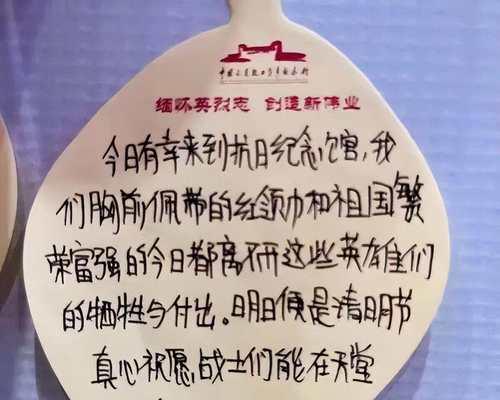 缅怀英烈志 创造新伟业
今日有幸来到抗日纪念馆,我
们胸前佩带的红领巾和祖国繁
荣富强的今日都离不开这些英雄们
的牺牲与付出。明日便是清明节
真心祝愿,战士们能在天堂